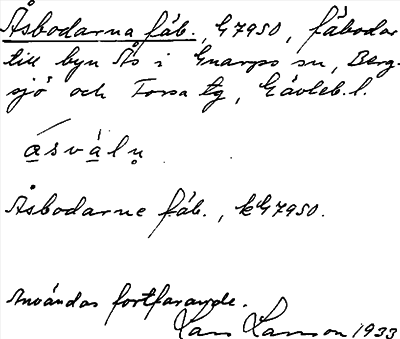 Åsbodarna fäb., G7950, fäbodar
till byn Ås i Gnarps sn, Berg-
sjö och Forsa tg, Gävleb. l.
Åsbodarne fäb., kG7950.
Användas fortfarande.
Lars Larsson 1933